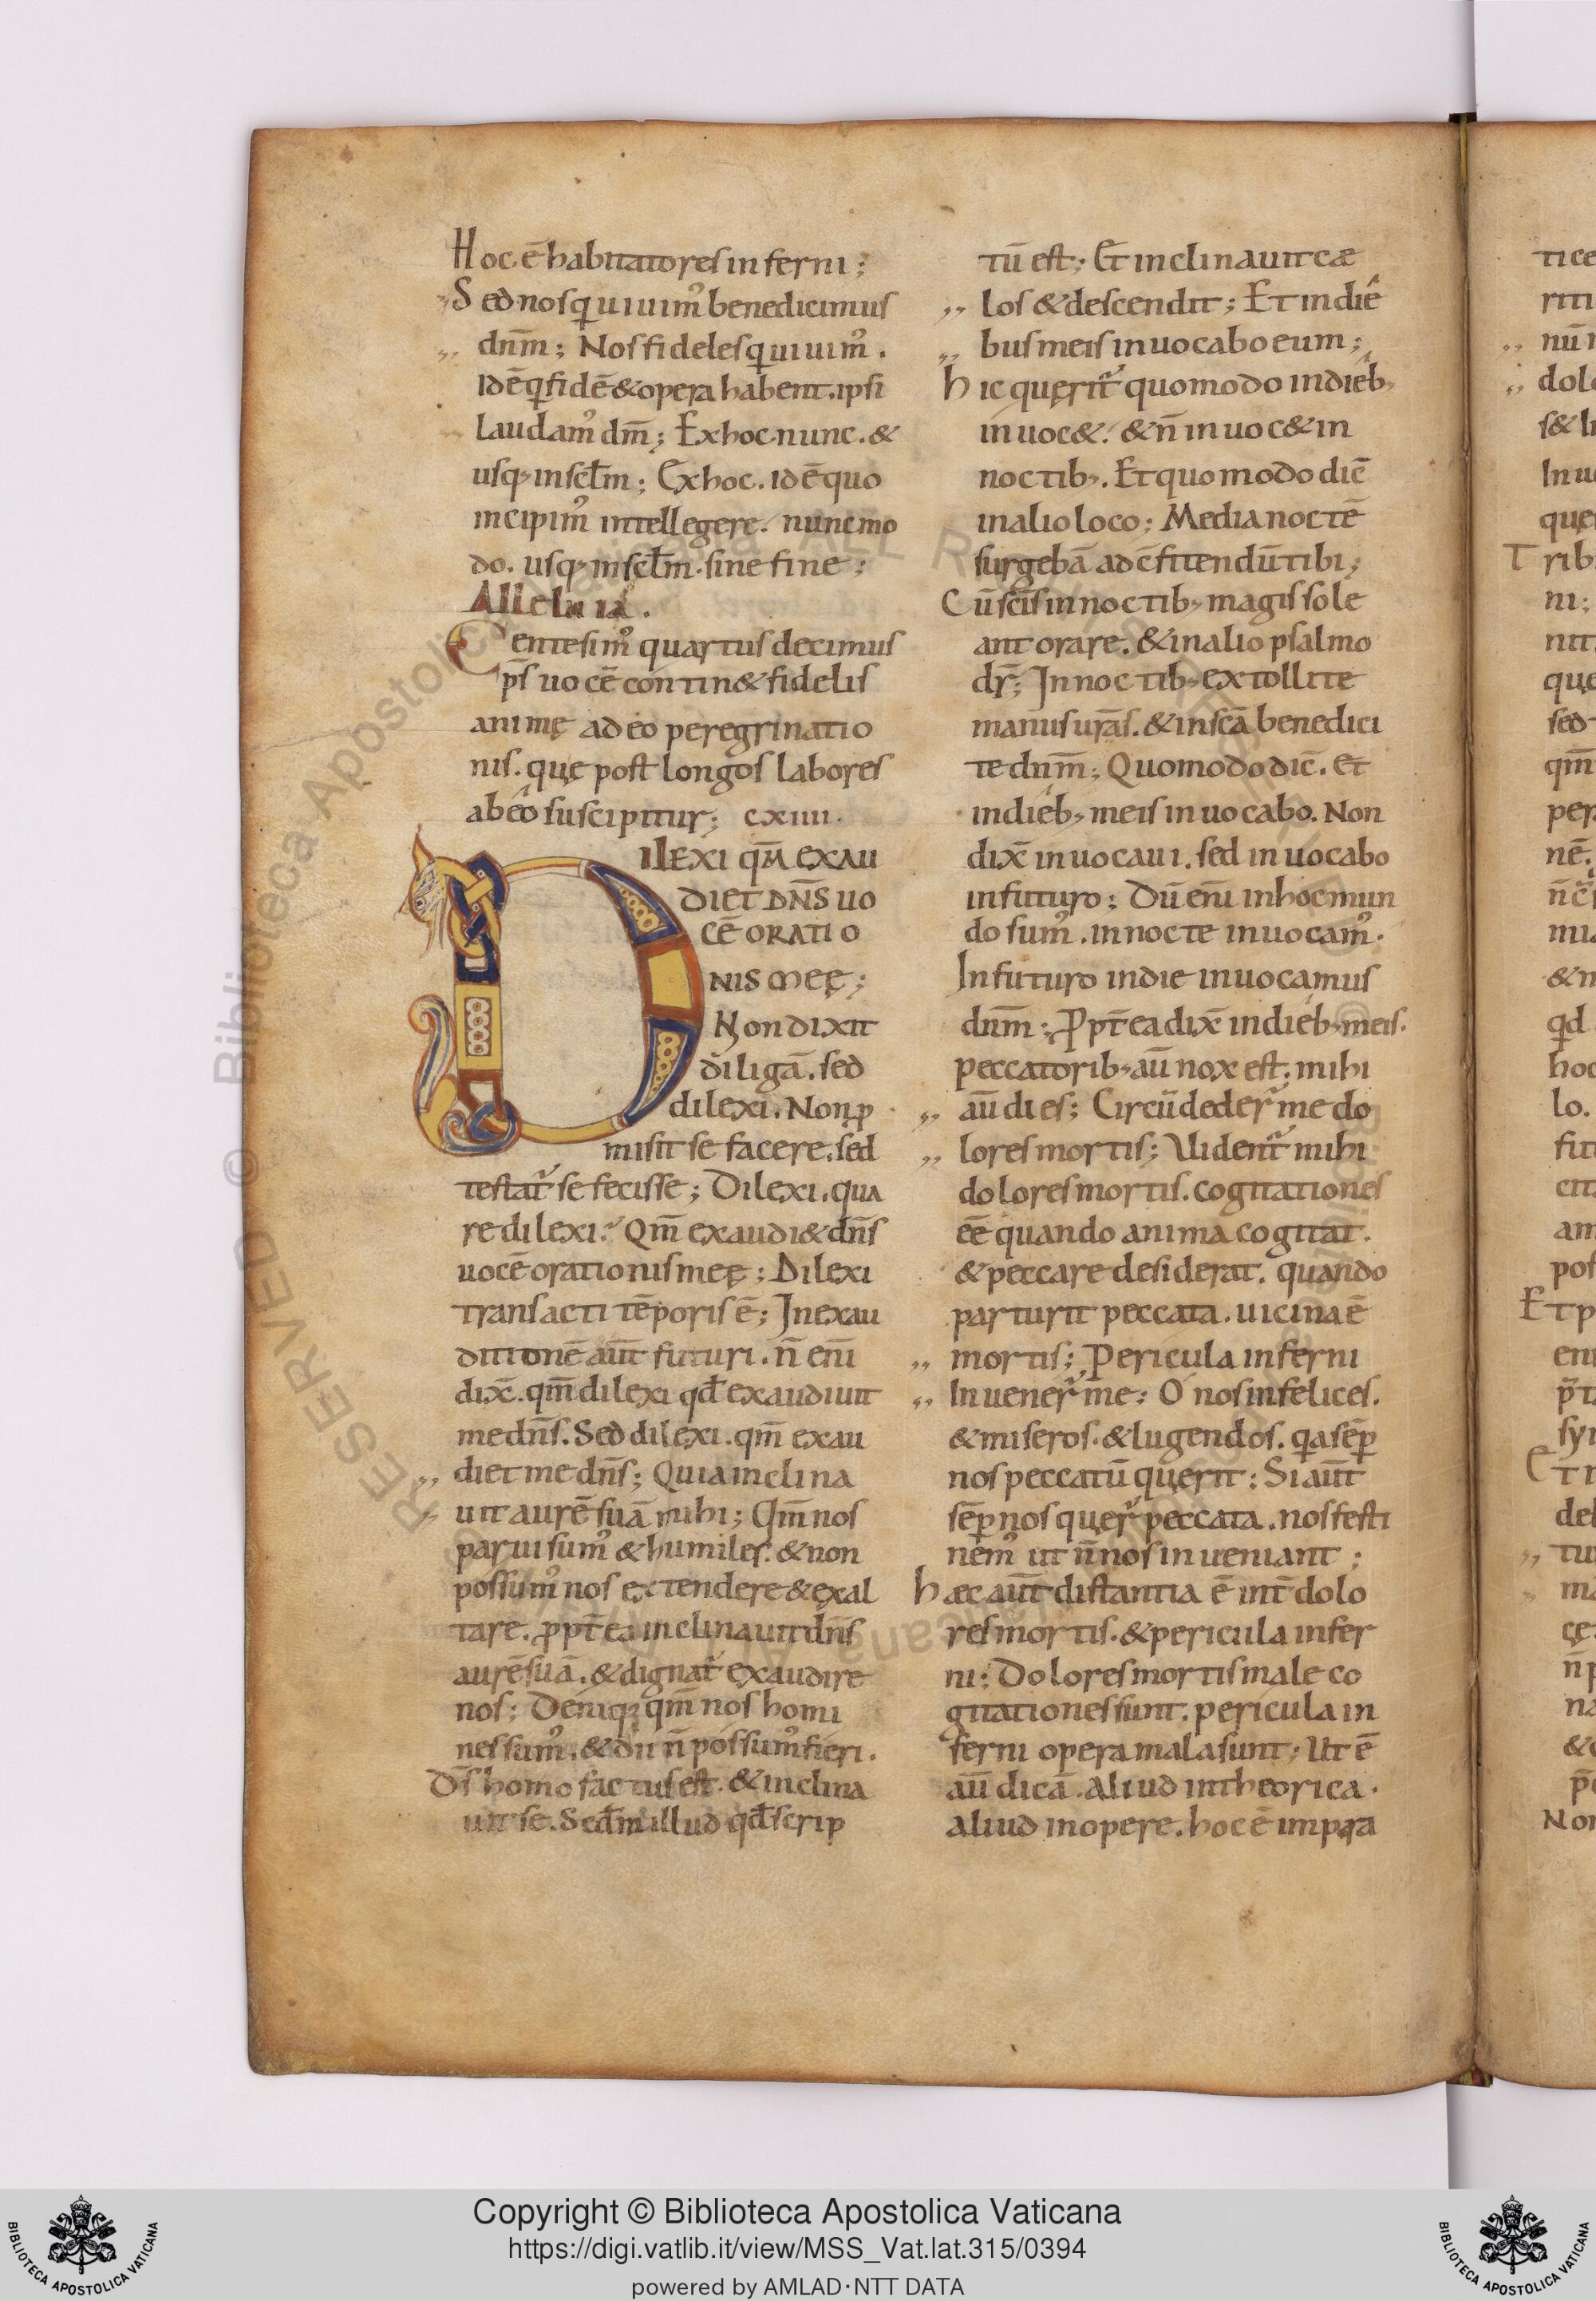 Hoc ē habitatores inferni;
Sed nos qui uiuimꝰ benedicimus
dnm̄; Nos fideles qui uiuimꝰ.
id ē q fidē & opera habent. ipsi
laudamꝰ dm̄; Ex hoc nunc. &
usq; in sclm̄; Ex hoc. id ē quo
incipimꝰ intellegere. nunc mo
do. usq; in sclm̄. sine fine;
Alleluia.
Centesimꝰ quartus decimus
ps̄ uocē continet fidelis
animę ad eo peregrinatio
nis. quę post longos labores
ab eo suscipitur; cxiiii.
DILEXI qm̄ EXAU
DIET DN̄S UO
CĒ ORATIO
NIS MEĘ;
Non dixit
diligā. sed
dilexi. Non ꝓ
misit se facere. sed
testat᷑ se fecisse; Dilexi. qua
re dilexi? Qm̄ exaudi& dn̄s
uocē orationis meę; Dilexi
transacti tēporis ē; In exau
ditionē aut̄ futuri. n̄ eni̅
dix̄. qm̄ dilexi qd̄ exaudiuit
me dn̄s. Sed dilexi. qm̄ exau
,, diet me dn̄s; Quia inclina
,, uit aurē suā mihi; Qm̄ nos
parui sumꝰ & humiles. & non
possumꝰ nos extendere & exal
tare. ꝓpt̄ea inclinauit dn̄s
aurē suā. & dignat᷑ exaudire
nos; Deniq; qm̄ nos homi
nes sumꝰ. & dii n̄ possumꝰ fieri.
Ds̄ homo factus est. & inclina
uit se. Scd̄m illud qd̄ scrip
tū est; Et inclinauit cæ
,, los & descendit; Et in diē
,, bus meis inuocabo eum;
hic quęrit᷑ quomodo in dieb;
inuoc&. & n̄ inuoc& in
noctib;. Et quomodo diē
in alio loco; Media noctē
surgebā ad c̄fitendū tibi;
Cū scīs in noctib; magis sole
ant orare. & in alio psalmo
dr̄; In noctib; extollite
manus urās. & in scā benedici
te dnm̄; Quomodo dic̄. et
in dieb; meis inuocabo. Non
dix̄ inuocaui. sed inuocabo
in futuro; Dū eni̅ in hoc mun
do sumꝰ. in nocte inuocamꝰ.
In futuro in die inuocamus
dnm̄; Ꝓpt̄ea dix̄ in dieb; meis.
peccatorib; au̅ nox est. mihi
,, au̅ dies; Circūdeder᷑ me do
,, lores mortis; Uident᷑ mihi
dolores mortis. cogitationes
ēē quando anima cogitat.
& peccare desiderat. quando
parturit peccata. uicina ē
,, mortis; Pericula inferni
,, Inuener᷑ me; O nos infelices.
& miseros. & lugendos. qa sēꝑ
nos peccatū querit; Si aut̄
sēꝑ nos quer᷑ peccata. nos festi
nemꝰ ut n̄ nos inueniant;
hæc aut̄ distantia ē int̄ dolo
res mortis. & pericula infer
ni; Dolores mortis male co
gitationes sunt. pericula in
ferni opera mala sunt; Ut ē
au̅ dicā. aliud in theorica.
aliud in opere. hoc ē in pra
Copyright © Biblioteca Apostolica Vaticana
https://digi.vatlib.it/view/MSS_Vat.lat.315/0394
powered by AMLAD·NTT DATA
BIBLIOTECA APOSTOLICA VATICANA
BIBLIOTECA APOSTOLICA VATICANA